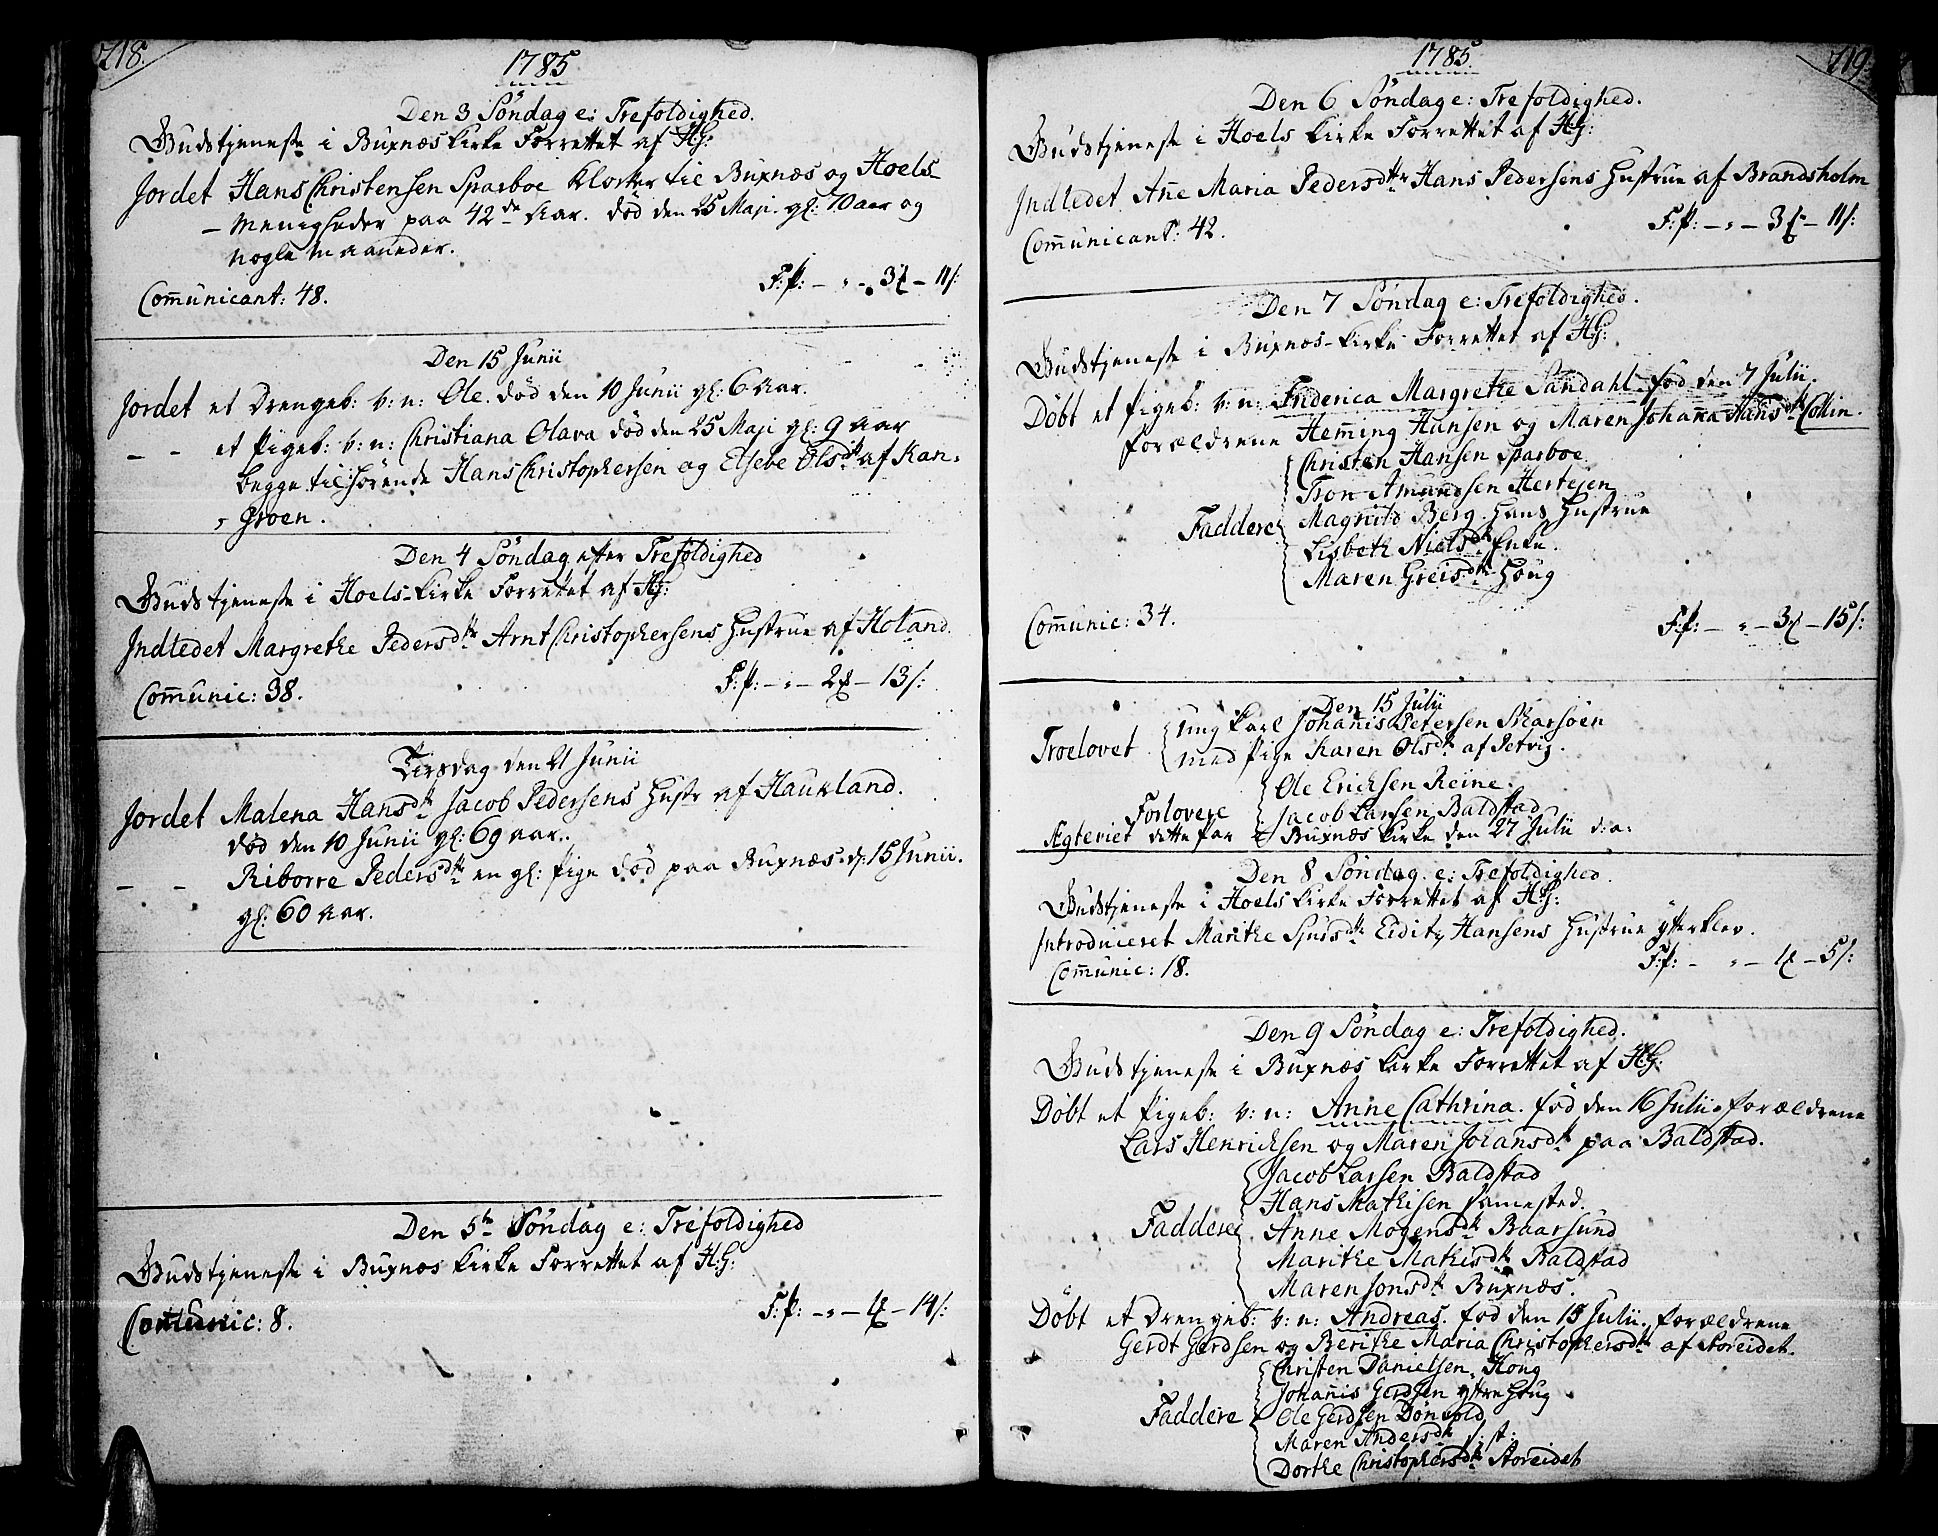 718.
1785
Den 3 Söndag e: Trefoldighed.
Gudstjeneste i Buxnæs Kirke Forrettet af HG:
Jordet Hans Christensen Sparboe Klocker til Buxnæs og Hoels
Menigheder paa 42de Aar. død den 25 Maji. gl: 70 aar og
nogle Maaneder.
F:p: – „ – 3 – 11/:
Com̄unicant: 48.
Den 15 Junii
Jordet et Drengeb: v: n: Ole. død den 10 Junii gl: 6 Aar.
– – et Pigeb: v: n: Christiana Olava død den 25 Maji gl: 9 aar
begge tilhörende Hans Christophersen og Elsebe Olsdtr af Kan-
Groen.
Den 4 Söndag efter Trefoldighed
Gudstjeneste i Hoels-Kirke Forrettet af HG:
Indledet Margrethe Pedersdtr Arnt Christophersens Hustrue af Holand.
F:p: – „ – 2 – 13/:
Com̄unic: 38.
Tirsdag den 21 Junii
Jordet Malena Hansdtr Jacob Pedersens Hustr af Haukland.
død den 10 Junii gl: 69 aar.
– – Riborre Pedersdtr en gl: Pige død paa Buxnæs. d: 15 Junii.
gl: 60 aar.
Den 5te Söndag e: Trefoldighed
Gudstjeneste i Buxnæs Kirke Forrettet af H:G:
F:p: – „ – – 14/:
Com̄unic: 8.
719.
1785.
Den 6 Söndag e: Trefoldighed.
Gudstjeneste i Hoels Kirke Forrettet af HG:
Indledet An̄e Maria Pedersdtr Hans Pedersens Hustrue af Brandsholm
F:p: – „ – 3 – 11/:
Com̄unicant: 42.
Den 7 Söndag e: Trefoldighed.
Gudstjeneste i Buxnæs-Kirke Forrettet af HG:
Döbt et Pigeb: v: n: Friderica Margrethe Sandahl. fød den 7 Julii.
forældrene Hem̄ing Hansen og Maren Johan̄a Hansdtr Collin.
Christen Hansen Sparboe
Tron Amundsen Hertejen
Faddere Magnild Berg. Hans Hustrue
Lisbeth Nielsdtr Enke.
Maren Greisdtr Houg
Com̄unic: 34.
F:p: – „ – 3 – 15/:
Den 15 Julii
Troelovet Ung Karl Johan̄is Petersen Skarsöen
med Pige Karen Olsdtr af Petvig.
Ole Ericksen Reine.
Forlovere Jacob Larsen Baldstad
Ægteviet dette Par i Buxnæs Kirke den 27 Julii d: a:
Den 8 Söndag. e: Trefoldighed.
Gudstjeneste i Hoels Kirke Forrettet af HG:
Introduceret Marithe Sjursdtr Hansens Hustrue ytterklev.
F:p: – „ – – 5/:
Com̄unic: 18.
Den 9 Söndag e: Trefoldighed.
Gudstjeneste i Buxnæs Kirke Forrettet af HG:
Döbt et Pigeb: v: n: Anne Cathrina. fød den 16 Julii. forældrene
Lars Henrichsen og Maren Johansdtr paa Baldstad.
Jacob Larsen Baldstad
Hans Mathisen samested.
Faddere Anne Mogensdtr Baarsund
Marithe Mathisdtr Baldstad
Maren Jonsdtr Buxnæs.
Döbt et Drengeb: v: n: Andreas. fød den 18 Julii. forældrene
Gerdt Gerdsen og Berithe Maria Christophersdtr af Storeidet.
Christen Danielsen Houg
Johan̄is Gerdsen yttreHoug
Faddere Ole Gerdsen Dönvold
Maren Andersdtr
Dorthe Christophersdtr Storeidet